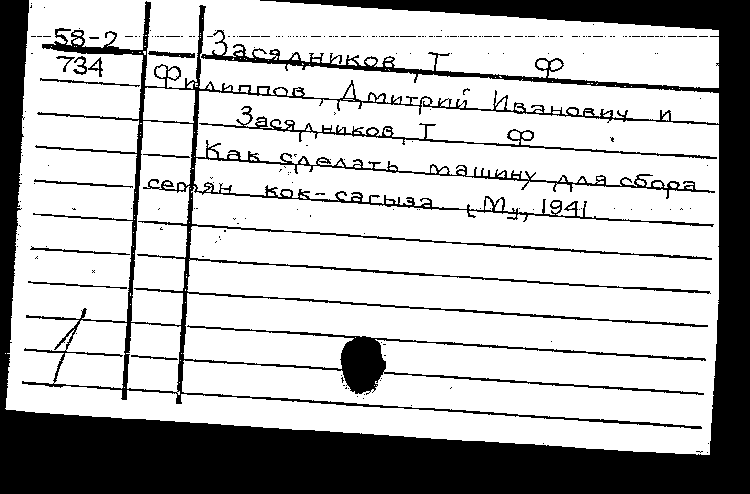 58-2 Засядников, Т Ф
734 Филиппов, Дмитрий Иванович и
Засядников, Т Ф
Как сделать машину для сбора
семян кок-сагыза. [М.], 1941.
1